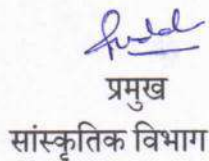 प्रमुख
सांस्कृतिक विभाग